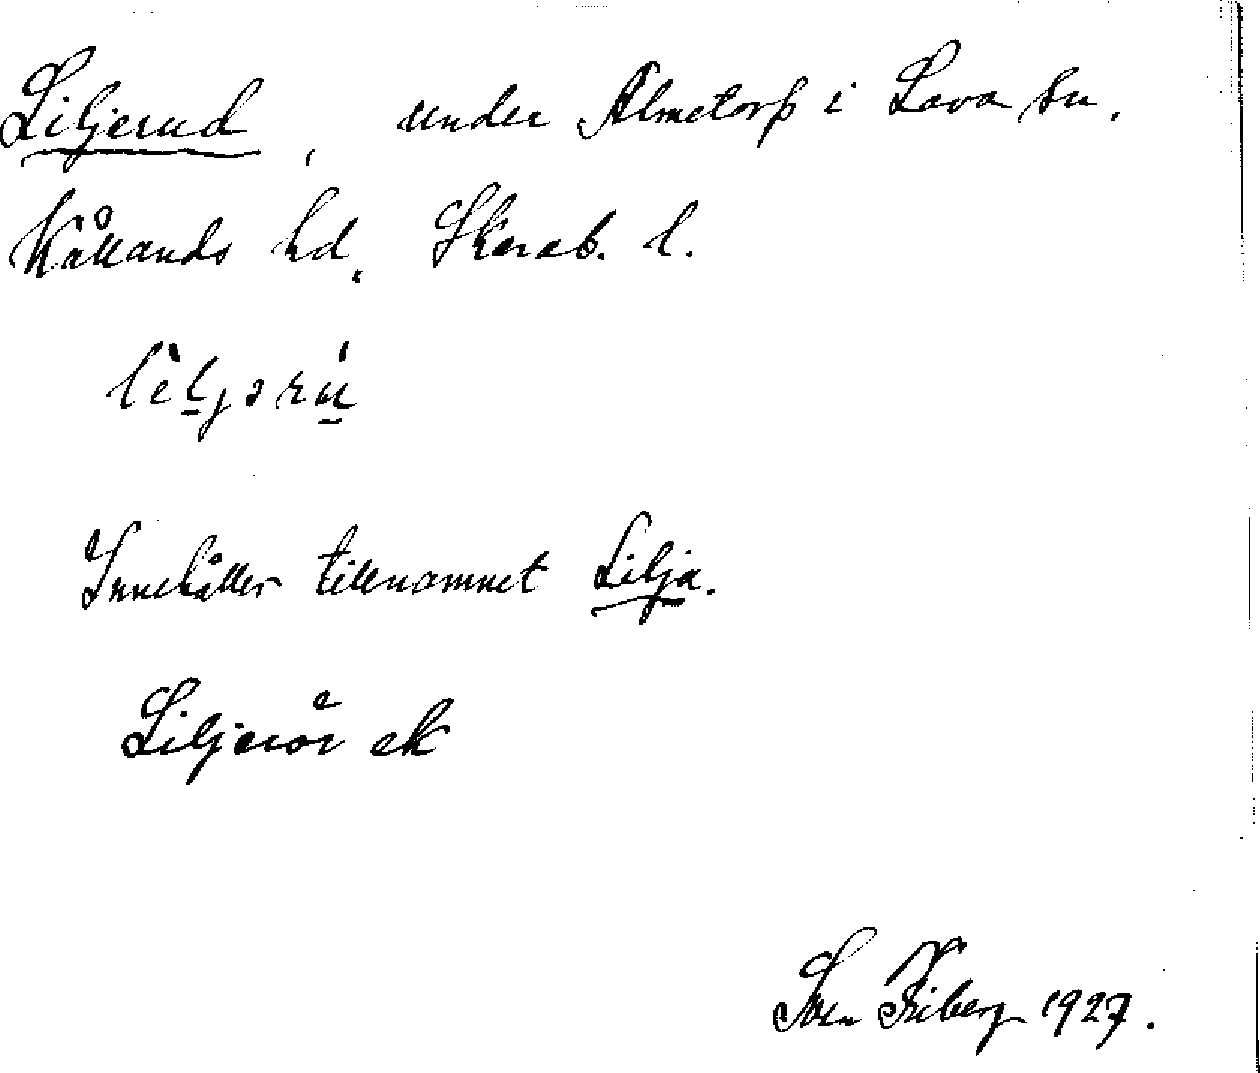 Liljerud, under Almetorp i Lava sn.
Kållands hd. Skarab. l.
Innehåller tillnamnet Lilja.
Liljerör ek
Sven Friberg 1927.